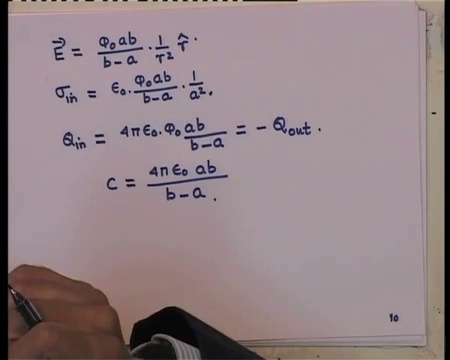 E⃗ = φ₀ab/(b-a) · 1/r² r̂.
σin = ε₀. φ₀ab/(b-a) · 1/a².
Qin = 4πε₀.φ₀ ab/(b-a) = - Qout.
C = 4πε₀ ab/(b-a).
10